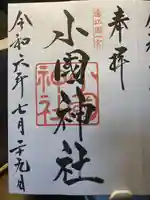 奉拝
遠江國一宮
小國神社
令和六年七月二十九日